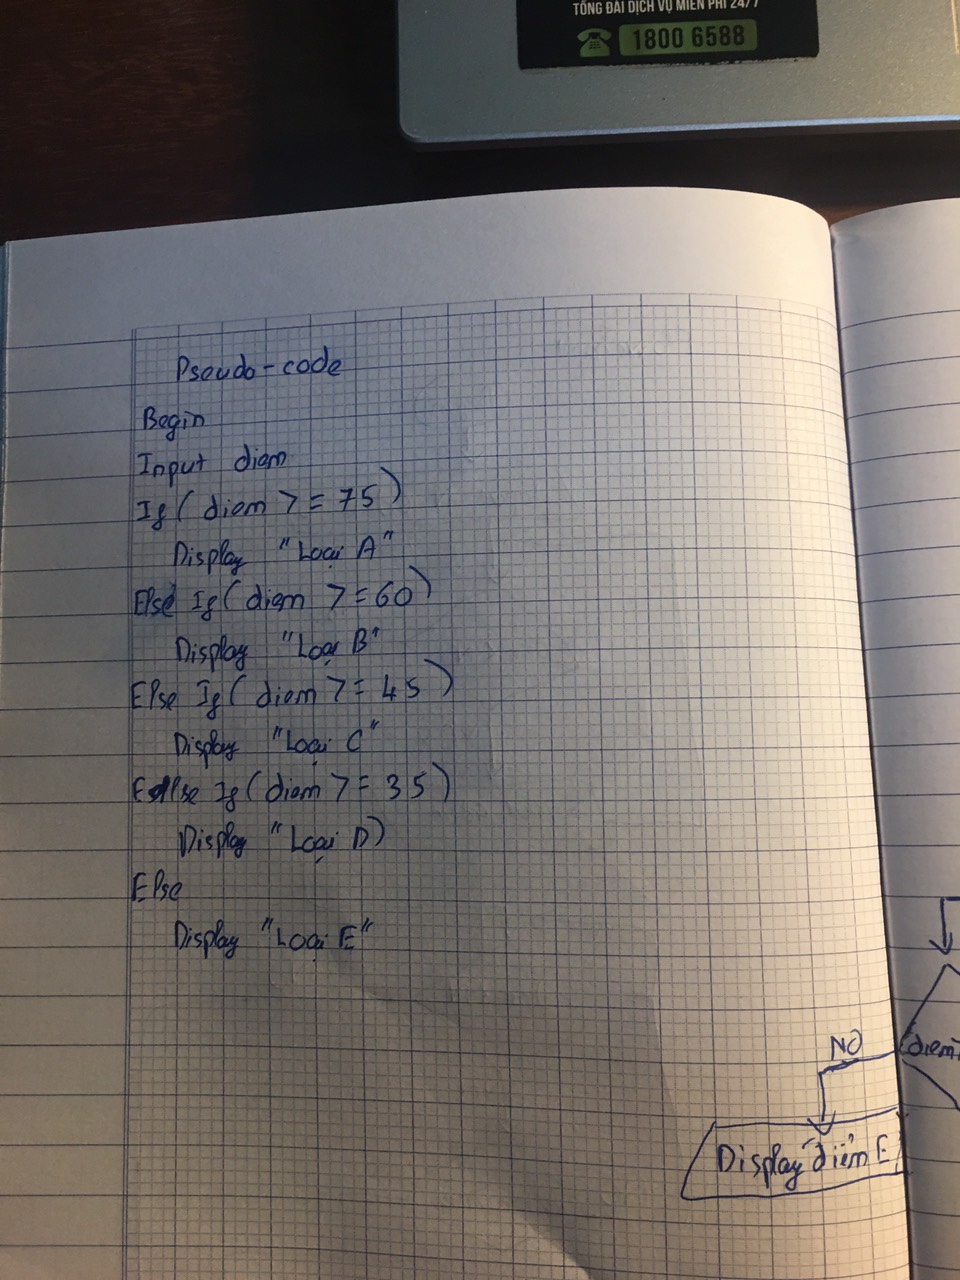 TỔNG ĐÀI DỊCH VỤ MIỄN PHÍ 24/7
1800 6588
Pseudo-code
Begin
Input diem
If( diem >= 75)
Display "Loại A"
Else If( diem >= 60)
Display "Loại B"
Else If( diem >= 45)
Display "Loại C"
Else If( diem >= 35)
Display "Loại D)
Else
Display "Loại E"
NO
(diem
Display "điểm E